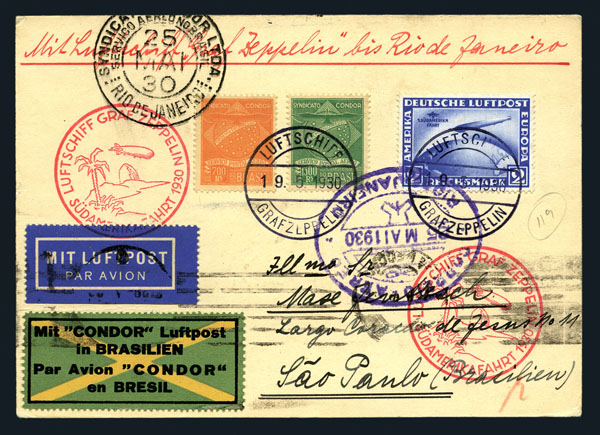 Mit Luftschiff "Graf Zeppelin" bis Rio de Janeiro
SYNDICATO CONDOR LTDA.
SERVIÇO AEREO NO BRASIL
25
MAI
30
RIO DE JANEIRO
LUFTSCHIFF GRAF ZEPPELIN
SÜDAMERIKAFAHRT 1930
SYNDICATO CONDOR
700
SYNDICATO CONDOR
1300
DEUTSCHE LUFTPOST
1. SÜDAMERIKA
FAHRT
AMERIKA
EUROPA
2 REICHSMARK 2
LUFTSCHIFF
19.5.1930
GRAF ZEPPELIN
LUFTSCHIFF
19.5.1930
GRAF ZEPPELIN
JANEIRO
25 MAI 1930
119
MIT LUFTPOST
PAR AVION
Mit "CONDOR" Luftpost
in BRASILIEN
Par Avion "CONDOR"
en BRESIL
Illmo Sr
Max
Largo Coração de Jesus No 11
São Paulo (Brasilien)
LUFTSCHIFF GRAF ZEPPELIN
SÜDAMERIKAFAHRT 1930